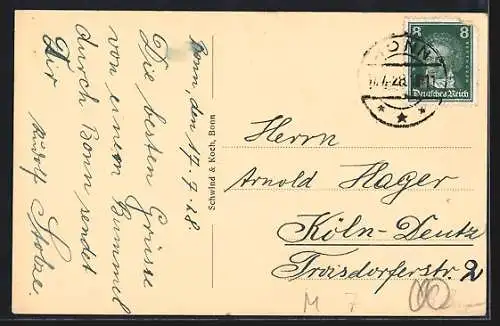 Bonn, den 17.7.28.
Die besten Grüsse
von einem Bummel
durch Bonn sendet
Dir
Rudolf Stolze.
Schwind & Koch, Bonn
BONN
8 8
Deutsches Reich
Herrn
Arnold Hager
Köln-Deutz
Troisdorferstr. 2
M 7